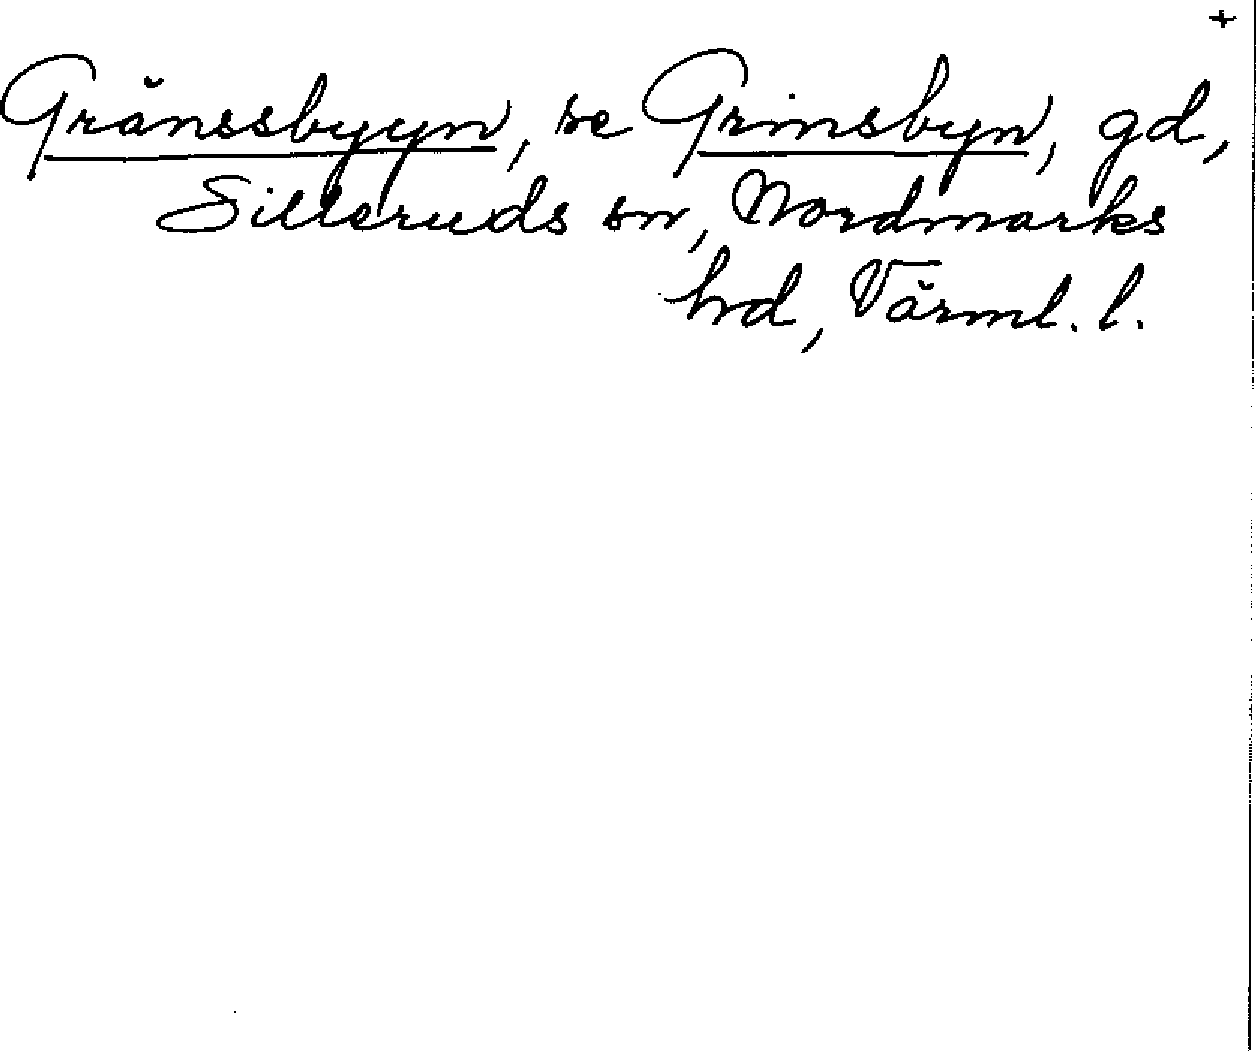 +
Gränssbyyn, se Grinsbyn, gd,
Silleruds sn, Nordmarks
hd, Värml. l.